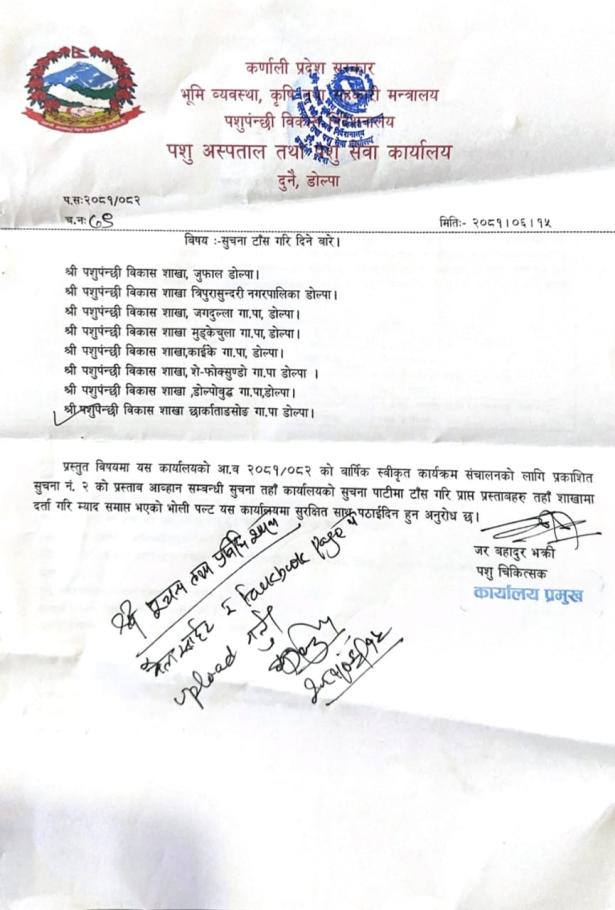 कर्णाली प्रदेश सरकार
भूमि व्यवस्था, कृषि तथा सहकारी मन्त्रालय
पशुपंन्छी विकास निर्देशनालय
पशु अस्पताल तथा पशु सेवा कार्यालय
दुनै, डोल्पा
प.स:२०८१/०८२
च.न: ७९
मितिः- २०८१।०६।१५
विषय :-सुचना टाँस गरि दिने बारे।
श्री पशुपंन्छी विकास शाखा, जुफाल डोल्पा।
श्री पशुपंन्छी विकास शाखा त्रिपुरासुन्दरी नगरपालिका डोल्पा।
श्री पशुपंन्छी विकास शाखा, जगदुल्ला गा.पा, डोल्पा।
श्री पशुपंन्छी विकास शाखा मुड्केचुला गा.पा, डोल्पा।
श्री पशुपंन्छी विकास शाखा,काईके गा.पा, डोल्पा।
श्री पशुपंन्छी विकास शाखा, शे-फोक्सुण्डो गा.पा डोल्पा ।
श्री पशुपंन्छी विकास शाखा ,डोल्पोबुद्ध गा.पा,डोल्पा।
श्री पशुपंन्छी विकास शाखा छार्काताङसोङ गा.पा डोल्पा।
प्रस्तुत विषयमा यस कार्यालयको आ.व २०८१/०८२ को वार्षिक स्वीकृत कार्यक्रम संचालनको लागि प्रकाशित
सुचना नं. २ को प्रस्ताव आव्हान सम्बन्धी सुचना तहाँ कार्यालयको सुचना पाटीमा टाँस गरि प्राप्त प्रस्तावहरु तहाँ शाखामा
दर्ता गरि म्याद समाप्त भएको भोली पल्ट यस कार्यालयमा सुरक्षित साथ पठाईदिन हुन अनुरोध छ।
जर बहादुर भक्री
पशु चिकित्सक
कार्यालय प्रमुख
श्री सूचना तथा प्रविधि शाखा
वेभसाईट र Facebook Page मा
upload गर्नु।